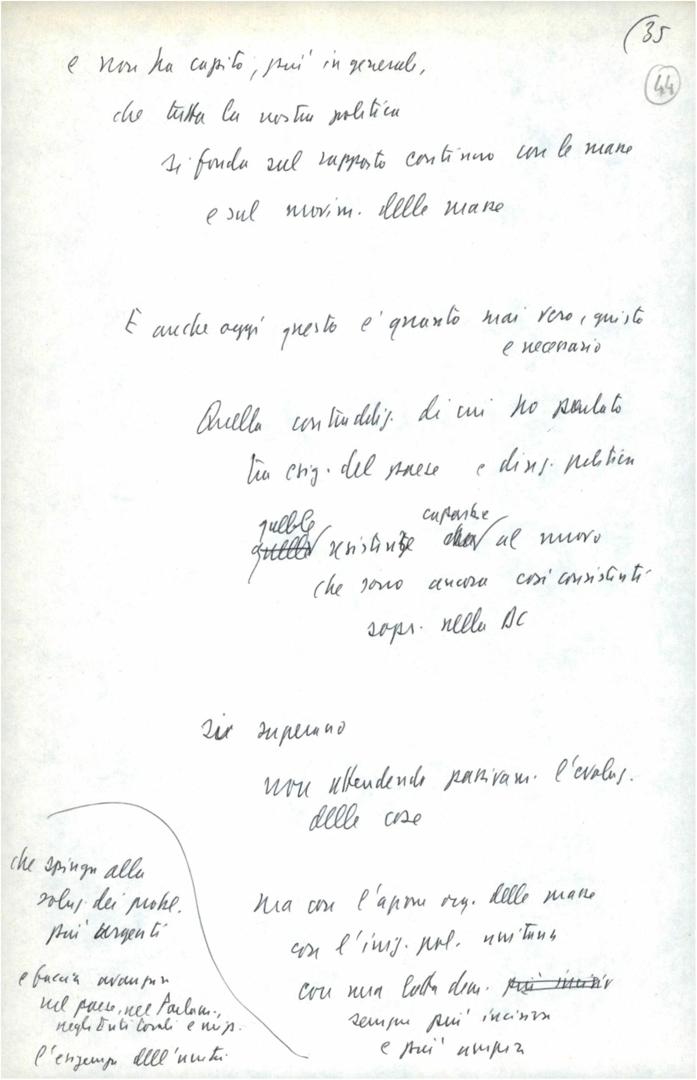 (35
44
e non ha capito, più in generale,
che tutta la nostra politica
si fonda sul rapporto continuo con le masse
e sul movim. delle masse
E anche oggi questo è quanto mai vero, giusto
e necessario
Quella contraddiz. di cui ho parlato
tra esig. del paese e direz. politica
quelle
quella resistenze capovolte al nuovo
che sono ancora così consistenti
sopr. nella DC
si superano
non attendendo passivam. l'evoluz.
delle cose
ma con l'azione org. delle masse
con l'iniz. pol. unitaria
con una lotta dem. più incisiv
sempre più incisiva
e più ampia
che spinga alla
soluz. dei probl.
più urgenti
e faccia avanzare
nel paese, nel Parlam.,
negli Enti locali e
l'esigenza dell'unità